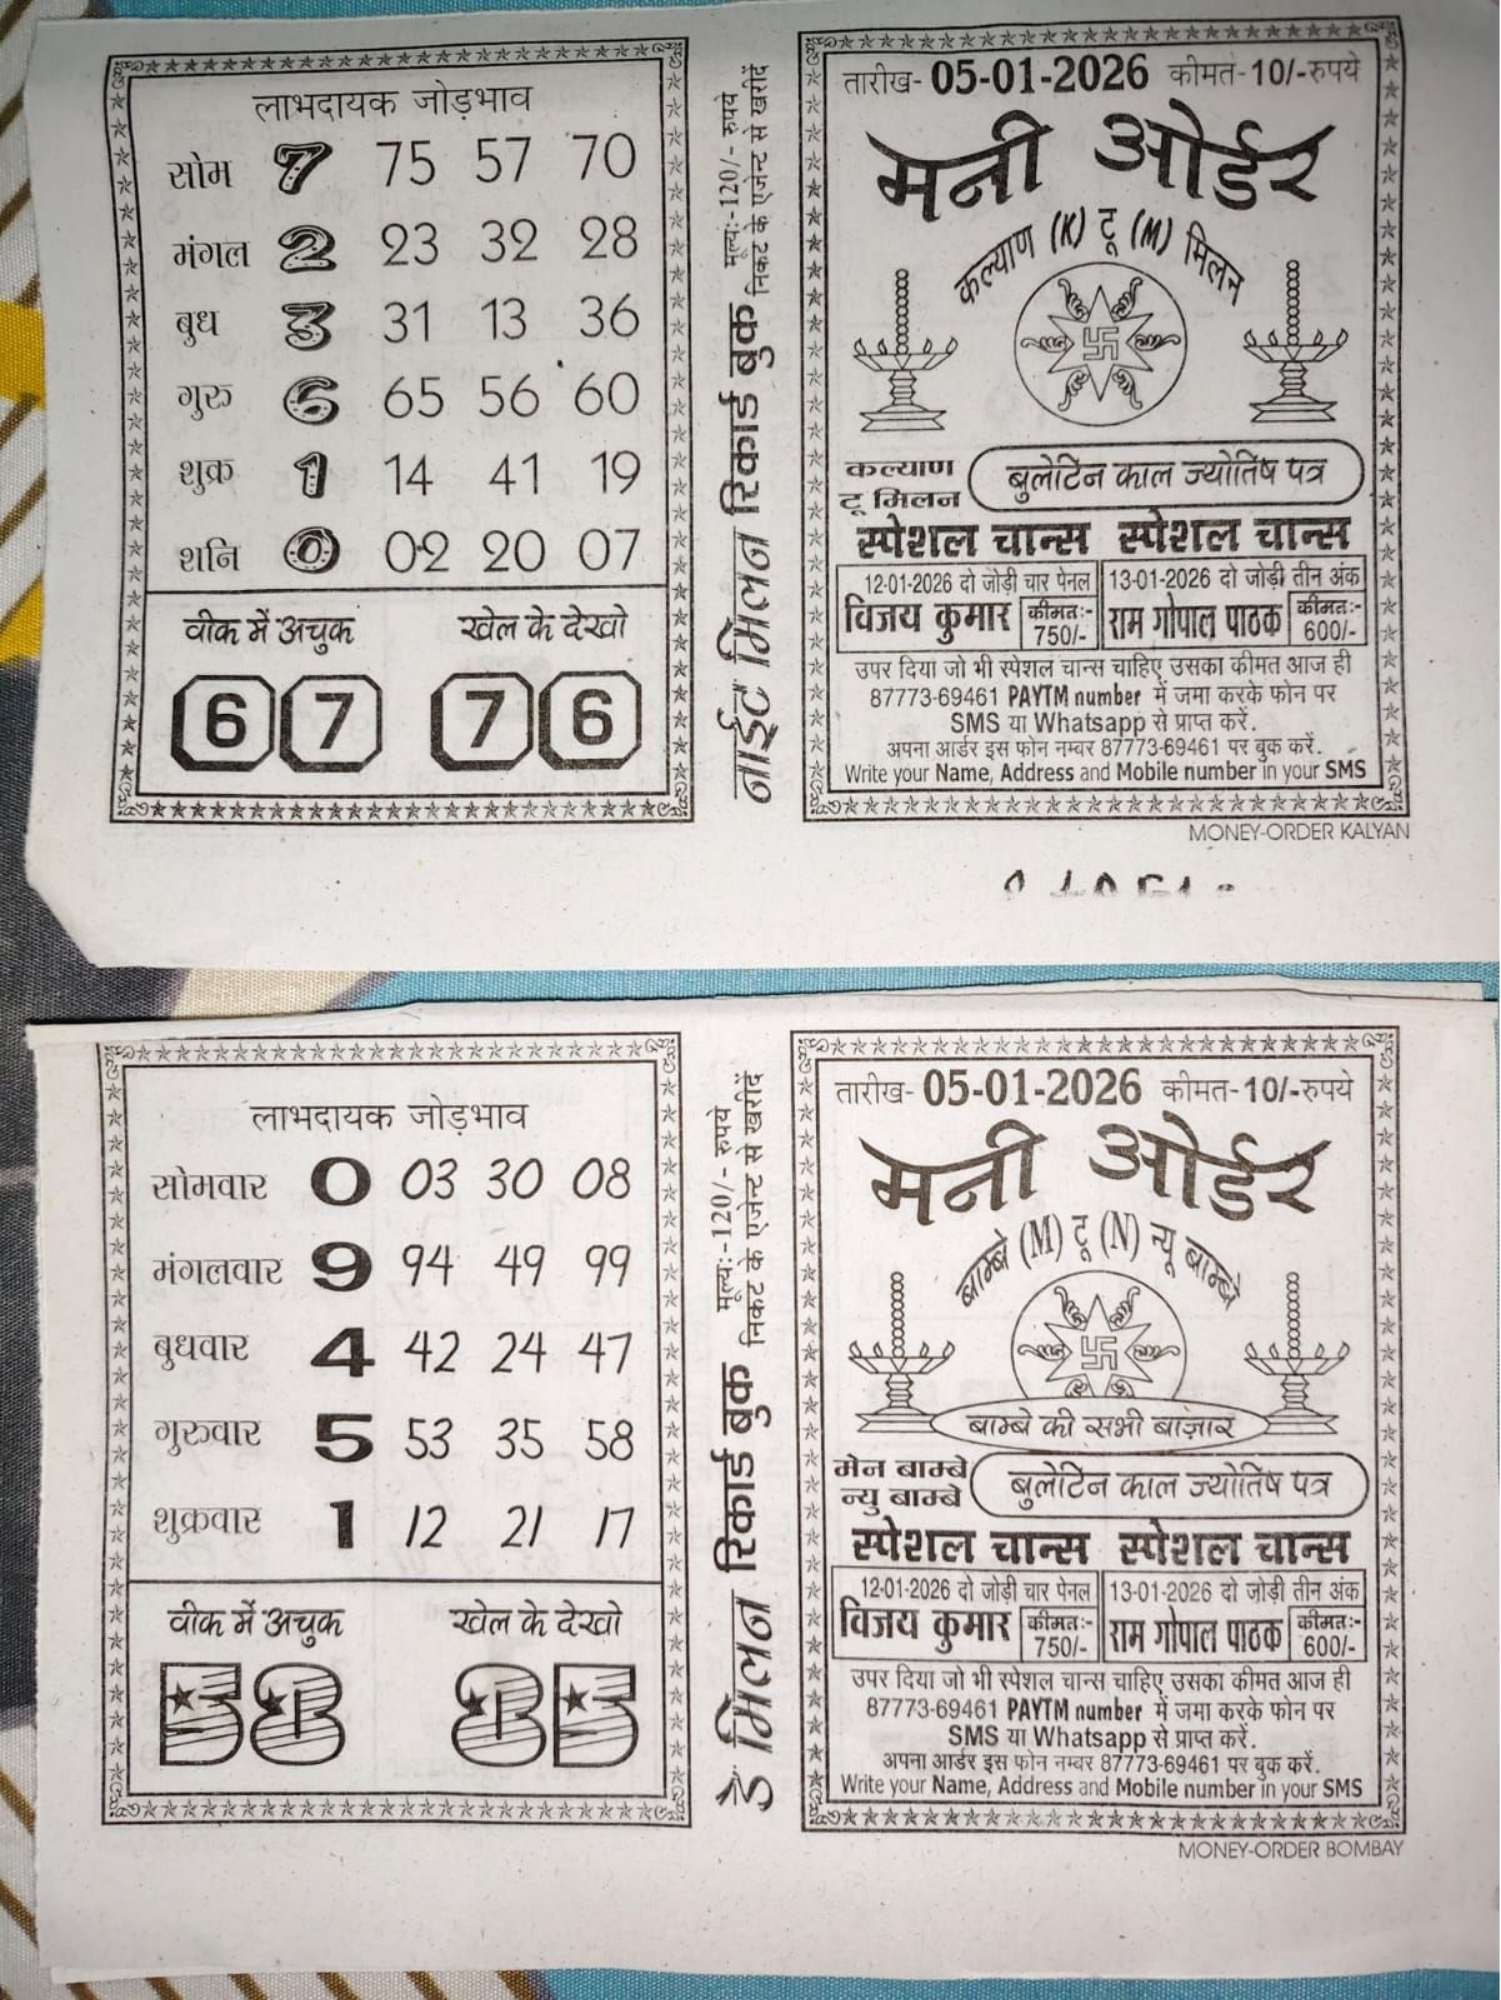 लाभदायक जोड़भाव
सोम 7 75 57 70
मंगल 2 23 32 28
बुध 3 31 13 36
गुरु 6 65 56 60
शुक्र 1 14 41 19
शनि 0 02 20 07
वीक में अचुक खेल के देखो
67 76
नाईट मिलन रिकार्ड बुक
मूल्य:-120/- रुपये
निकट के एजेन्ट से खरीदें
तारीख- 05-01-2026 कीमत-10/-रुपये
मनी ओर्डर
कल्याण (K) टू (M) मिलन
कल्याण
टू मिलन
बुलेटिन काल ज्योतिष पत्र
स्पेशल चान्स स्पेशल चान्स
12-01-2026 दो जोड़ी चार पेनल
विजय कुमार
कीमतः-
750/-
13-01-2026 दो जोड़ी तीन अंक
राम गोपाल पाठक
कीमतः-
600/-
उपर दिया जो भी स्पेशल चान्स चाहिए उसका कीमत आज ही
87773-69461 PAYTM number में जमा करके फोन पर
SMS या Whatsapp से प्राप्त करें.
अपना आर्डर इस फोन नम्बर 87773-69461 पर बुक करें.
Write your Name, Address and Mobile number in your SMS
MONEY-ORDER KALYAN
लाभदायक जोड़भाव
सोमवार 0 03 30 08
मंगलवार 9 94 49 99
बुधवार 4 42 24 47
गुरुवार 5 53 35 58
शुक्रवार 1 12 21 17
वीक में अचुक खेल के देखो
58 85
डे मिलन रिकार्ड बुक
मूल्य:-120/- रुपये
निकट के एजेन्ट से खरीदें
तारीख- 05-01-2026 कीमत-10/-रुपये
मनी ओर्डर
बाम्बे (M) टू (N) न्यू बाम्बे
बाम्बे की सभी बाज़ार
मेन बाम्बे
न्यु बाम्बे
बुलेटिन काल ज्योतिष पत्र
स्पेशल चान्स स्पेशल चान्स
12-01-2026 दो जोड़ी चार पेनल
विजय कुमार
कीमतः-
750/-
13-01-2026 दो जोड़ी तीन अंक
राम गोपाल पाठक
कीमतः-
600/-
उपर दिया जो भी स्पेशल चान्स चाहिए उसका कीमत आज ही
87773-69461 PAYTM number में जमा करके फोन पर
SMS या Whatsapp से प्राप्त करें.
अपना आर्डर इस फोन नम्बर 87773-69461 पर बुक करें.
Write your Name, Address and Mobile number in your SMS
MONEY-ORDER BOMBAY